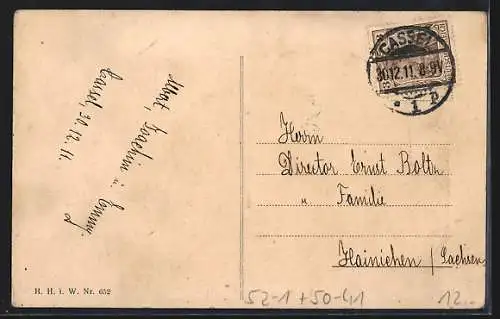 CASSEL
30.12.11. 8-9V
* 1 P
Cassel, 30.12.11.
Joachim u. Emmy.
Herrn
Director Ernst Bolte
u Familie
Hainichen / Sachsen
H. H. i. W. Nr. 652
52-1+50-41
12.-